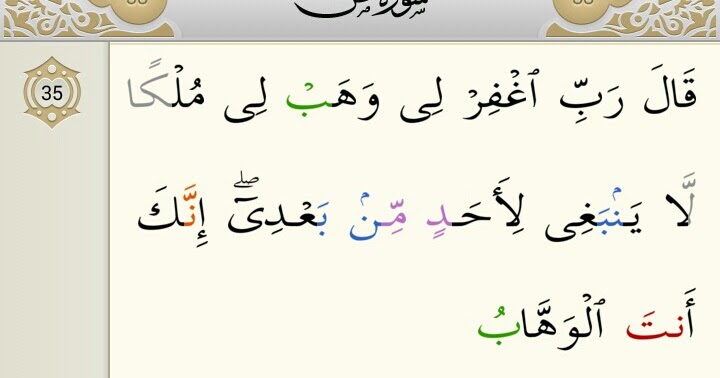 سورة ص
35
قَالَ رَبِّ ٱغۡفِرۡ لِى وَهَبۡ لِى مُلۡكًا
لَّا يَنۢبَغِى لِأَحَدٍ مِّنۢ بَعۡدِىٓۖ إِنَّكَ
أَنتَ ٱلۡوَهَّابُ